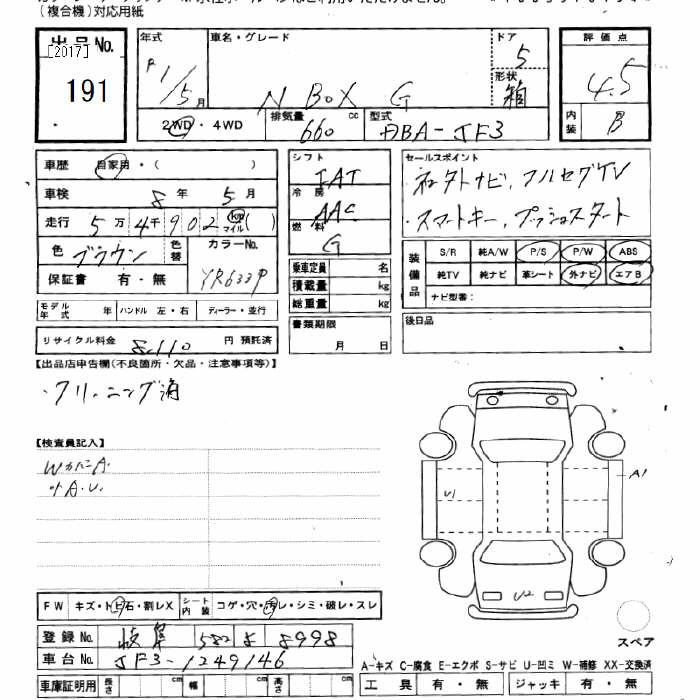 (複合機)対応用紙
出品No.
[2017]
191
年式
R1/5月
車名・グレード
N BOX G
ドア
5
形状
箱
2WD・4WD
排気量
660 cc
型式
DBA-JF3
評価点
4.5
内装
B
車歴 自家用・( )
車検 8年5月
走行 5万4千902 km マイル( )
色 ブラウン 色替 カラーNo.
保証書 有・無 YR633P
モデル年式 年 ハンドル 左・右 ディーラー・並行
リサイクル料金 8,110円 預託済
シフト
IAT
冷房
AAC
燃料
G
乗車定員 名
積載量 kg
総重量 kg
書類期限
月 日
セールスポイント
・社外ナビ、フルセグTV
・スマートキー、プッシュスタート
装備品
S/R 純A/W P/S P/W ABS
純TV 純ナビ 革シート 外ナビ エアB
ナビ型番:
後日品
【出品店申告欄(不良箇所・欠品・注意事項等)】
・クリーニング済
【検査員記入】
A.U.
U1
A1
U2
スペア
FW キズ・トビ石・割レX シート内装 コゲ・穴・汚レ・シミ・破レ・スレ
登録No. 岐阜 582 8998
車台No. JF3-1249146
車庫証明用 長さ cm 幅 cm 高さ cm
A-キズ C-腐食 E-エクボ S-サビ U-凹ミ W-補修 XX-交換済
工具 有・無 ジャッキ 有・無